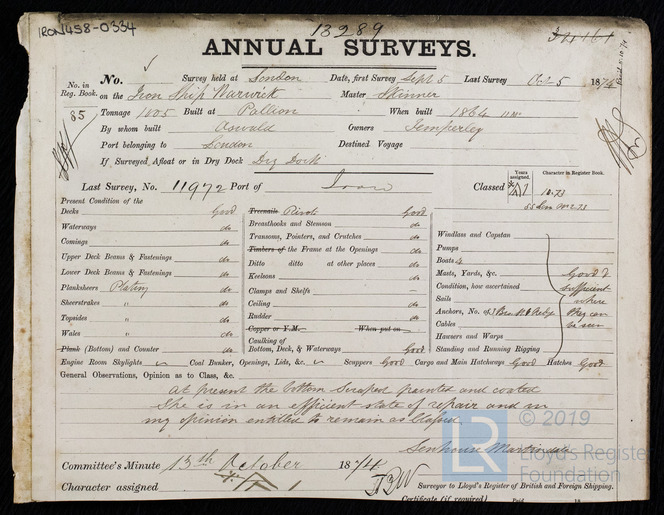 IRON458-0334
13289
ANNUAL SURVEYS.
No. in Reg. Book.
85
No. Survey held at London Date, first Survey Sept 5 Last Survey Oct 5 1874
on the Iron Ship Warwick Master Skinner
Tonnage 1005 Built at Pallion When built 1864
By whom built Oswald Owners Temperley
Port belonging to London Destined Voyage
If Surveyed Afloat or in Dry Dock Dry Dock
Last Survey, No. 11972 Port of Iron
Classed
Years assigned.
Character in Register Book.
A1 10.73
Present Condition of the
Decks Good
Waterways do
Comings do
Upper Deck Beams & Fastenings do
Lower Deck Beams & Fastenings do
Planksheers Plating do
Sheerstrakes " do
Topsides " do
Wales " do
Plank (Bottom) and Counter do
Treenails Rivets Good
Breasthooks and Stemson do
Transoms, Pointers, and Crutches do
Timbers of the Frame at the Openings do
Ditto ditto at other places do
Keelsons do
Clamps and Shelfs –
Ceiling do
Rudder do
Copper or Y.M. When put on
Caulking of
Bottom, Deck, & Waterways Good
Windlass and Capstan
Pumps
Boats 4
Masts, Yards, &c.
Condition, how ascertained
Sails
Anchors, No. of 3 Bow
Cables
Hawsers and Warps
Standing and Running Rigging
Good &
sufficient
where
they can
be seen
Engine Room Skylights Coal Bunker, Openings, Lids, &c. Scuppers Good Cargo and Main Hatchways Good Hatches Good
General Observations, Opinion as to Class, &c.
At present the bottom scraped painted and coated
She is in an efficient state of repair and in
my opinion entitled to remain as Classed
Senhouse Martindale
Committee's Minute 13th October 1874
Character assigned A 1
Surveyor to Lloyd's Register of British and Foreign Shipping.
Certificate (if required) Paid 18
© 2019
LR
Lloyd's Register
Foundation